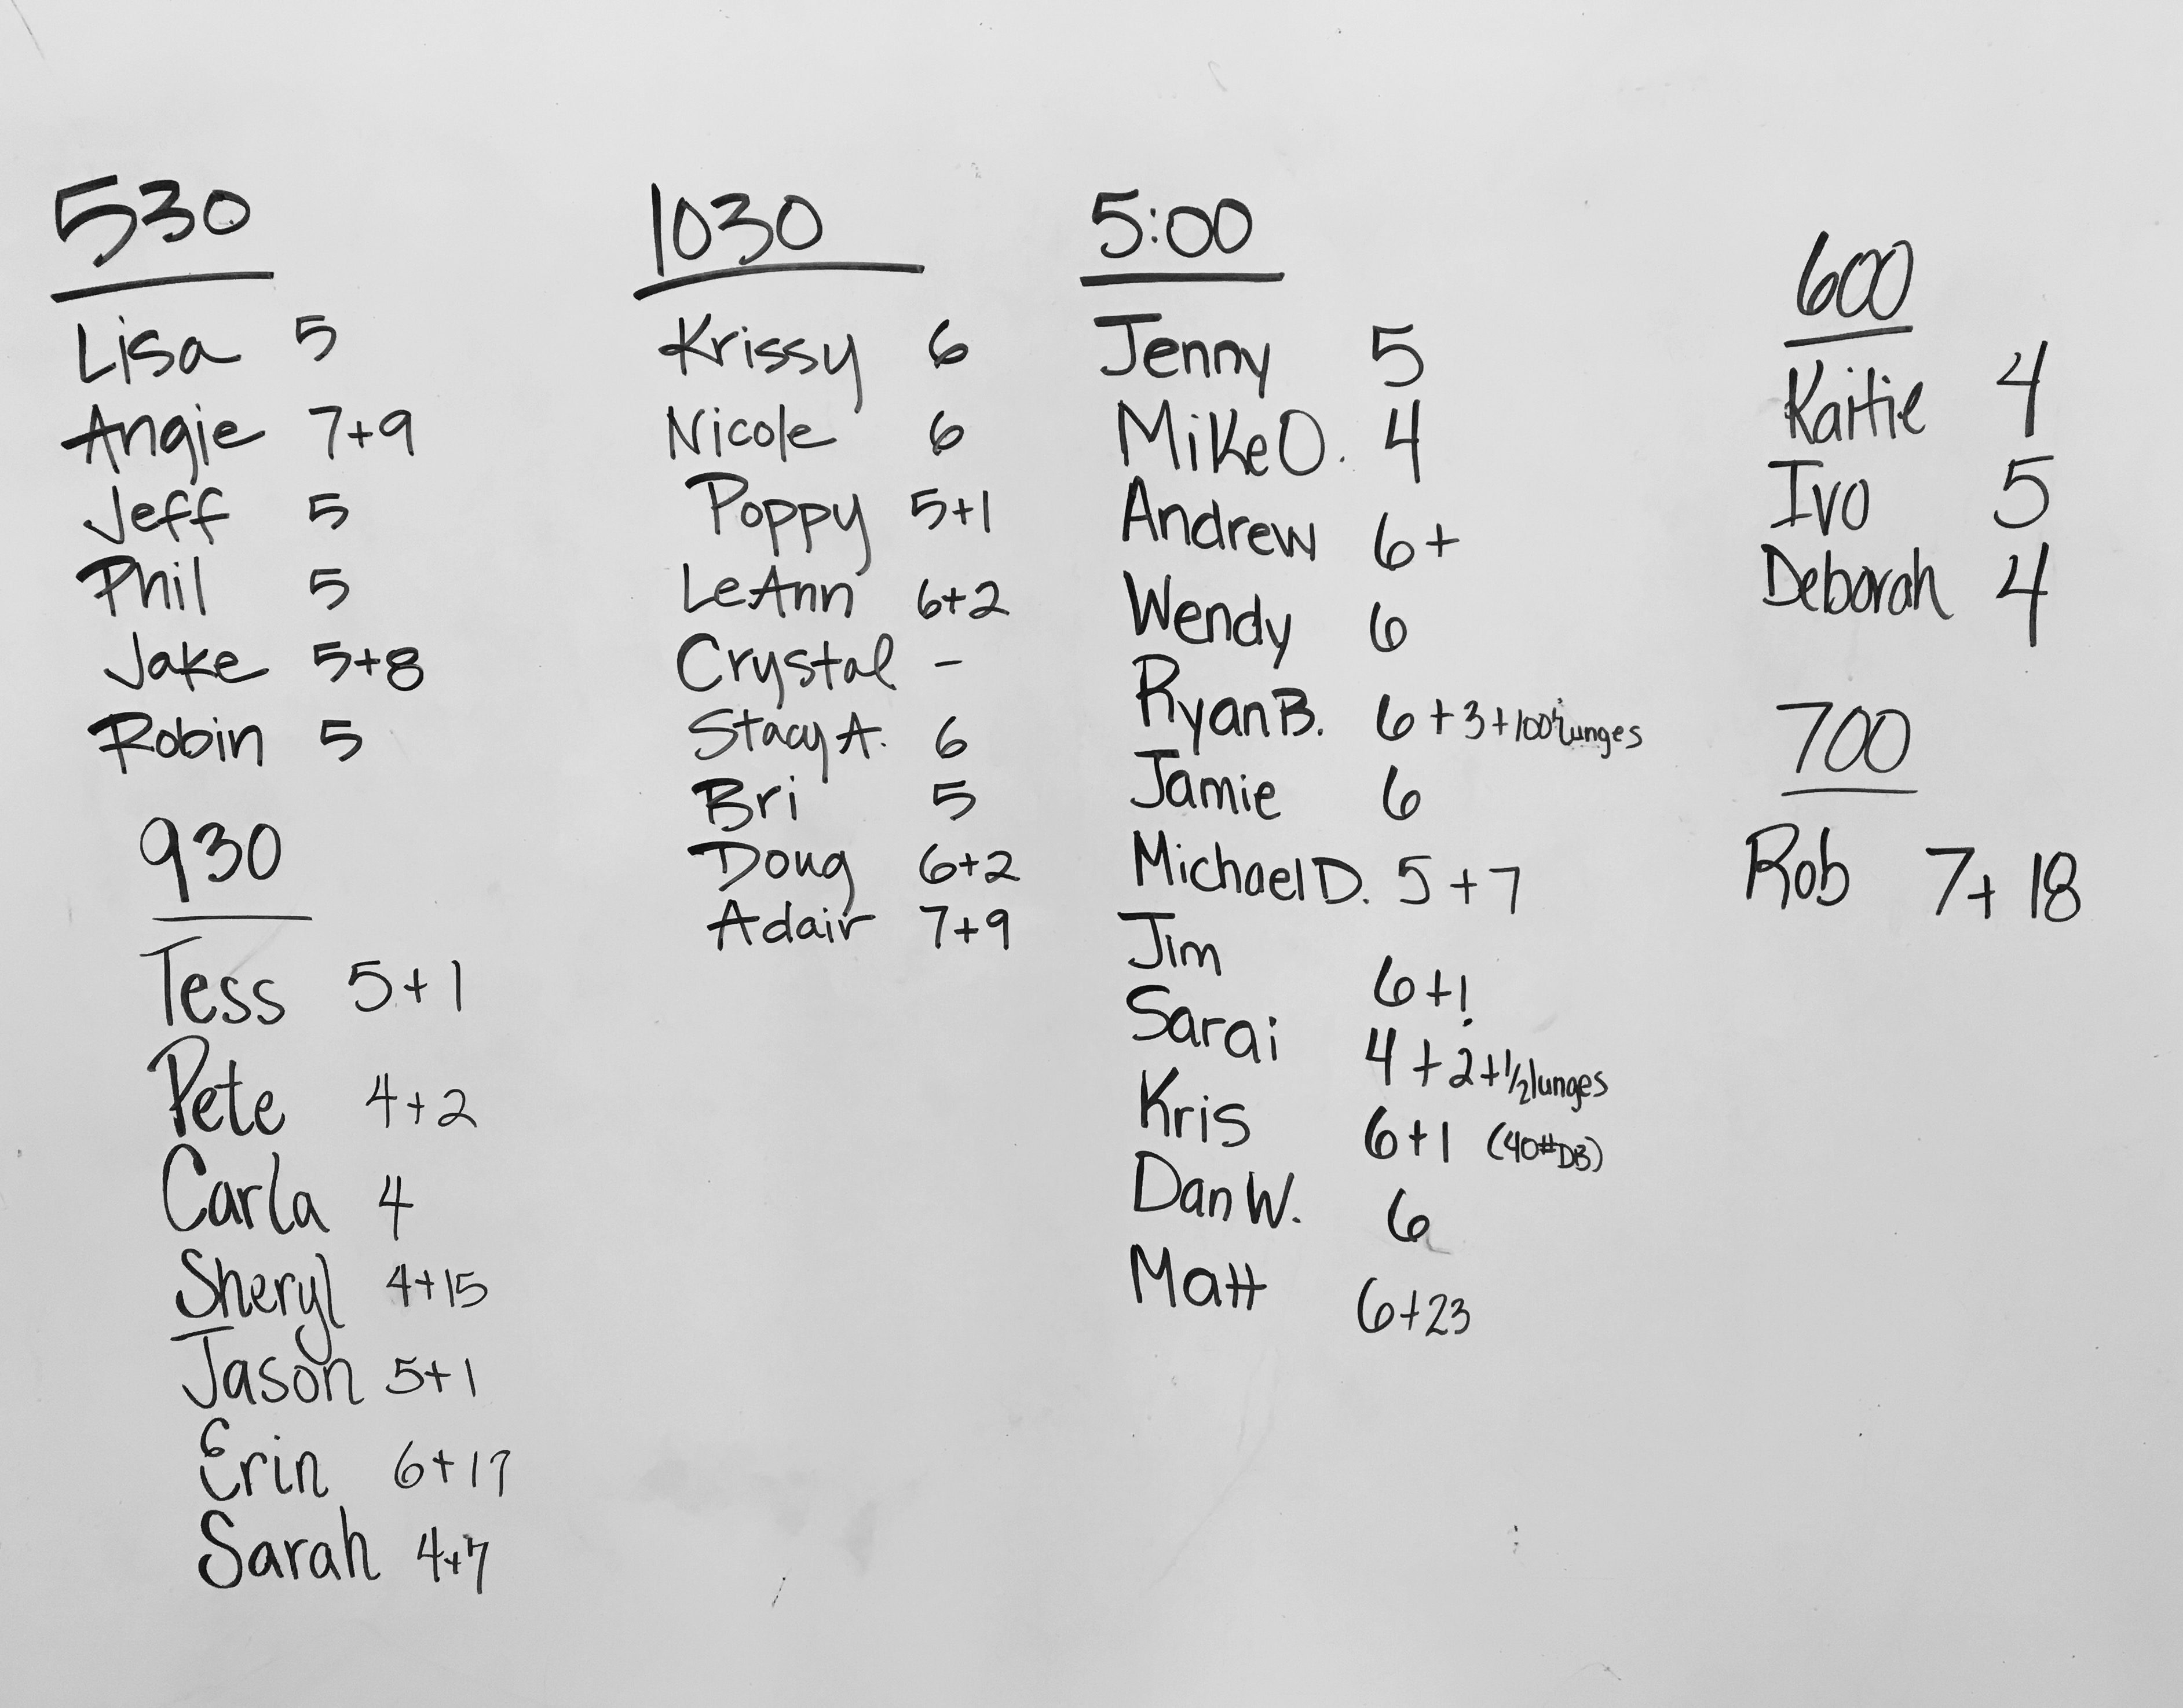 530
Lisa 5
Angie 7+9
Jeff 5
Phil 5
Jake 5+8
Robin 5
930
Tess 5+1
Pete 4+2
Carla 4
Sheryl 4+15
Jason 5+1
Erin 6+17
Sarah 4+7
1030
Krissy 6
Nicole 6
Poppy 5+1
LeAnn 6+2
Crystal -
Stacy A. 6
Bri 5
Doug 6+2
Adair 7+9
5:00
Jenny 5
Mike O. 4
Andrew 6+
Wendy 6
Ryan B. 6+3+100' lunges
Jamie 6
Michael D. 5+7
Jim 6+1
Sarai 4+2+1/2 lunges
Kris 6+1 (40#DB)
Dan W. 6
Matt 6+23
600
Kaitie 4
Ivo 5
Deborah 4
700
Rob 7+18